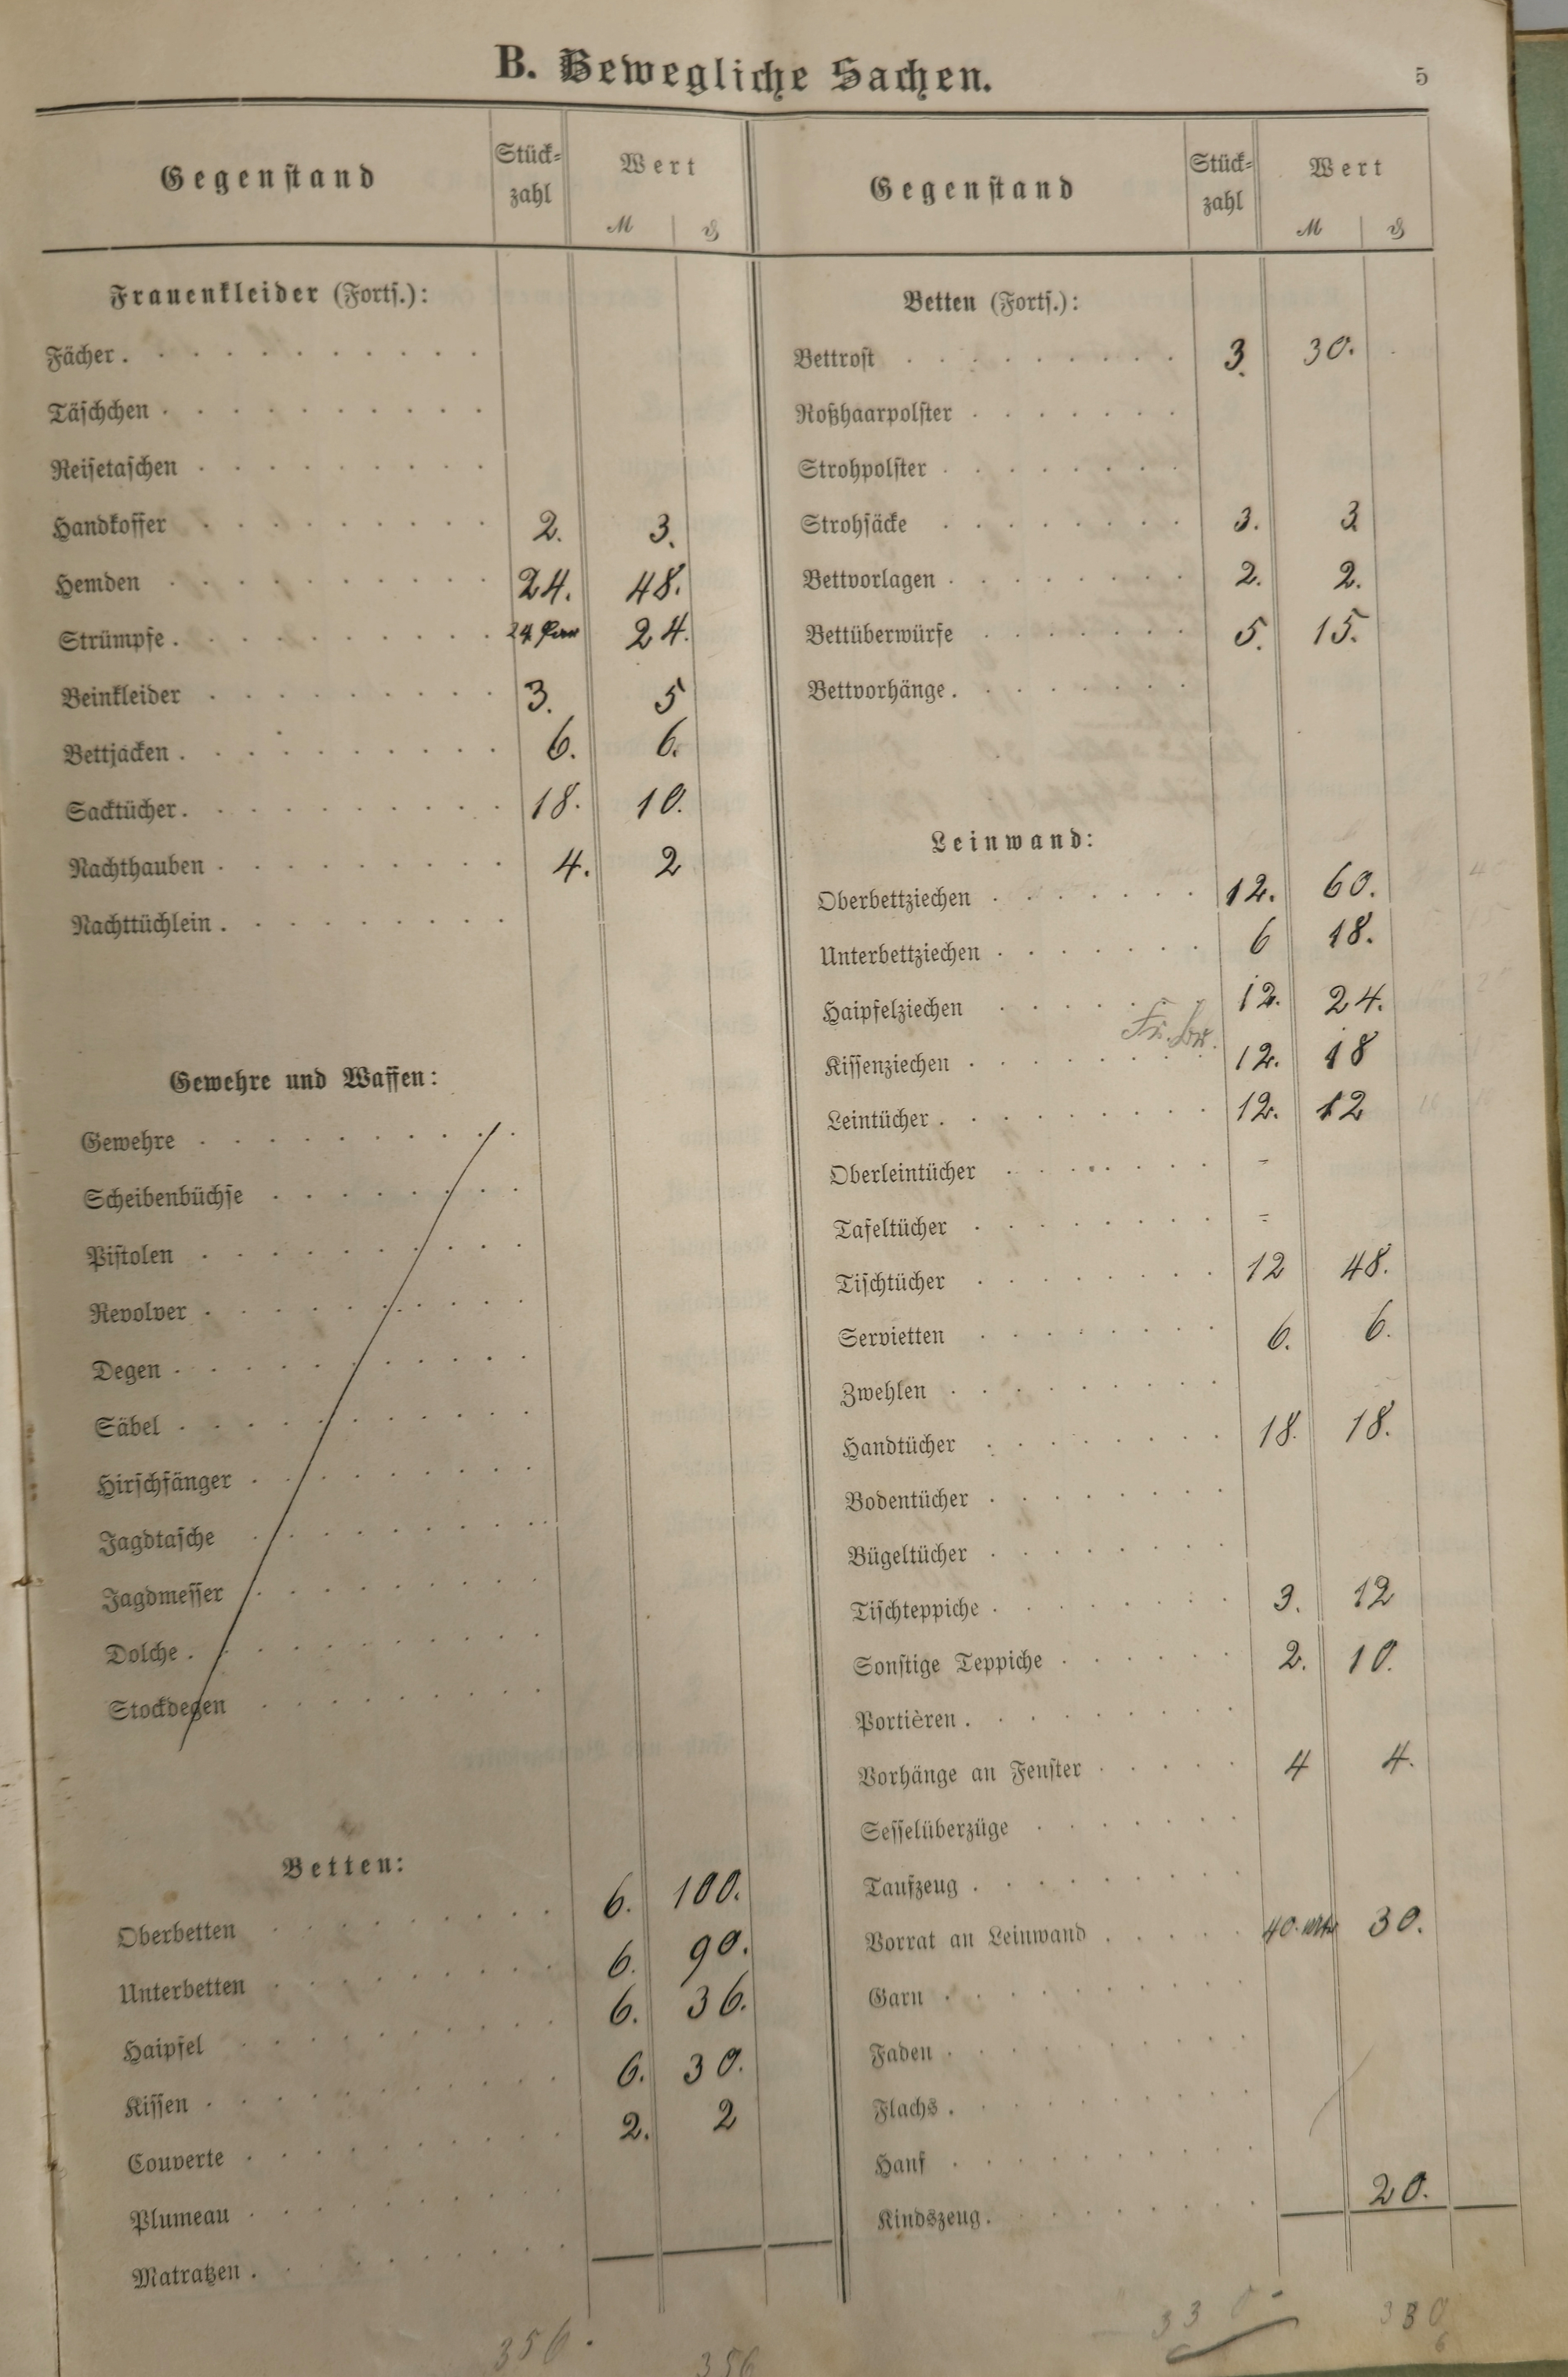 B. Bewegliche Sachen.
5
Gegenstand Stück-zahl Wert M ₰
Frauenkleider (Forts.):
Fächer
Täschchen
Reisetaschen
Handkoffer 2. 3.
Hemden 24. 48.
Strümpfe 24 Paar 24.
Beinkleider 3. 5
Bettjacken 6. 6.
Sacktücher 18. 10.
Nachthauben 4. 2
Nachttüchlein
Gewehre und Waffen:
Gewehre
Scheibenbüchse
Pistolen
Revolver
Degen
Säbel
Hirschfänger
Jagdtasche
Jagdmesser
Dolche
Stockdegen
Betten:
Oberbetten 6. 100.
Unterbetten 6. 90.
Haipfel 6. 36.
Kissen 6. 30.
Couverte 2. 2
Plumeau
Matratzen
356.
356
Gegenstand Stück-zahl Wert M ₰
Betten (Forts.):
Bettrost 3. 30.
Roßhaarpolster
Strohpolster
Strohsäcke 3. 3
Bettvorlagen 2. 2.
Bettüberwürfe 5. 15.
Bettvorhänge
Leinwand:
Oberbettziechen 12. 60.
Unterbettziechen 6 18.
Haipfelziechen 12. 24.
Kissenziechen 12. 18
Leintücher 12. 12
Oberleintücher -
Tafeltücher -
Tischtücher 12 48.
Servietten 6. 6.
Zwehlen
Handtücher 18. 18.
Bodentücher
Bügeltücher
Tischteppiche 3. 12
Sonstige Teppiche 2. 10.
Portièren
Vorhänge an Fenster 4 4.
Sesselüberzüge
Taufzeug
Vorrat an Leinwand 40. 30.
Garn
Faden
Flachs
Hanf
Kindszeug 20.
330 -
330